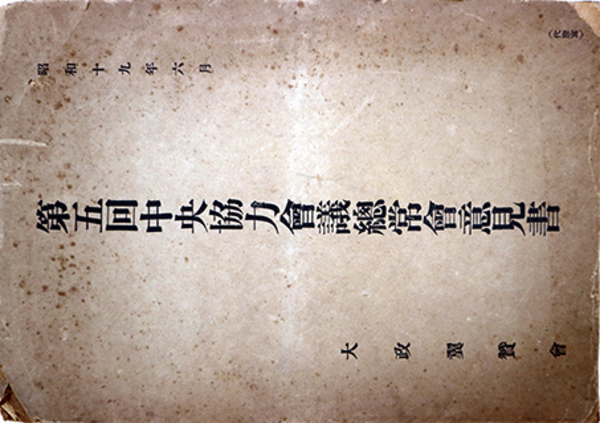 〈代謄寫〉
昭和十九年六月
第五回中央協力會議總常會意見書
大政翼贊會